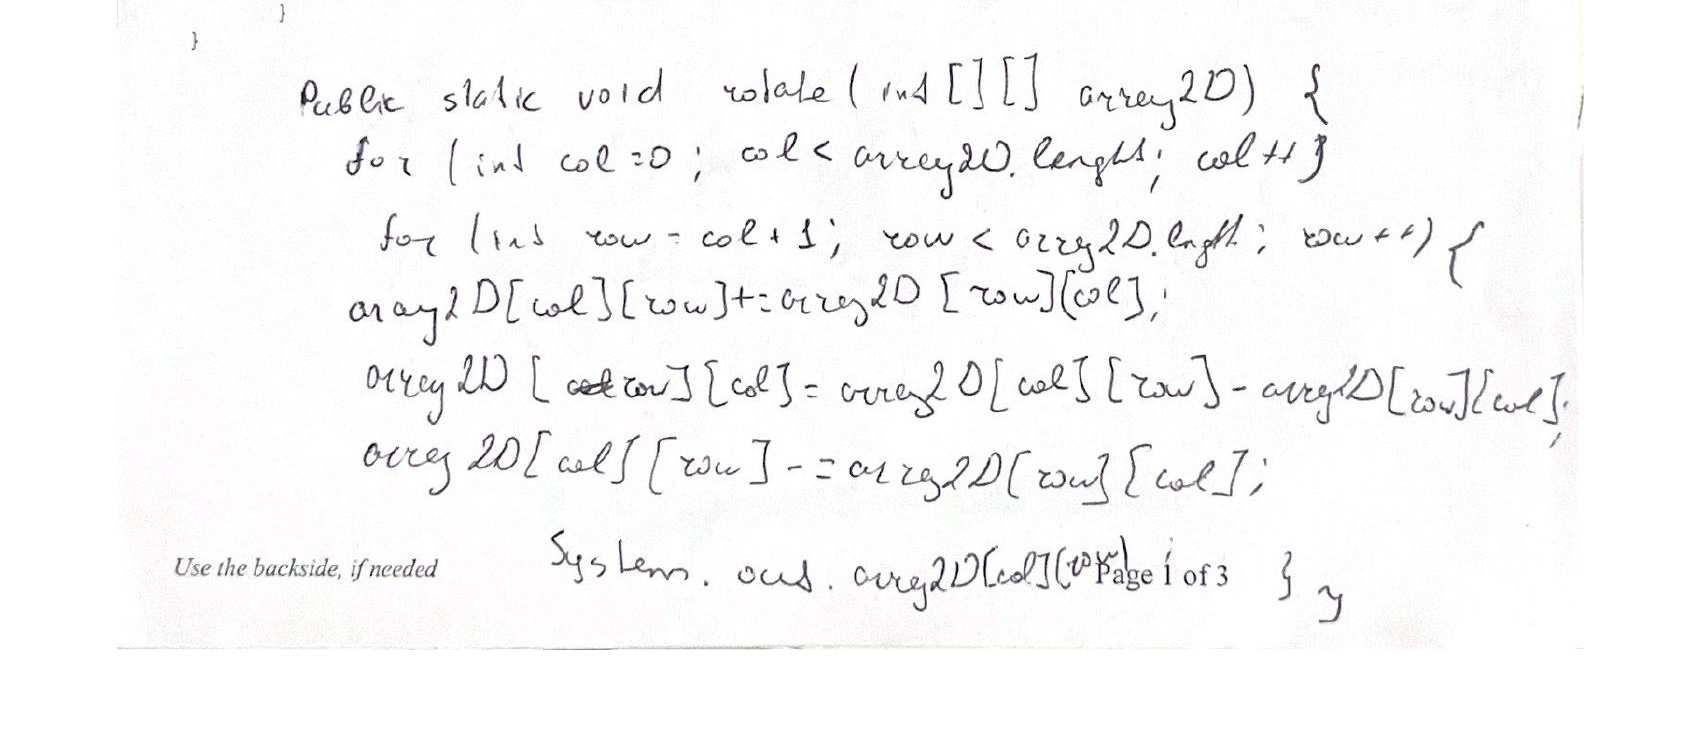 }
}
Public static void rotate ( int [ ] [ ] array2D) {
for ( int col = 0 ; col < array2D. lenght; col ++ }
for (int row = col + 1 ; row < array2D. lenght ; row ++) {
array2D[col][row]+=array2D [row][col];
array2D [ row] [col] = array2D[col] [row] - array2D[row][col];
array2D[col] [row] -= array2D[row] [col];
System. out. array2D[col][row] } }
Use the backside, if needed Page 1 of 3